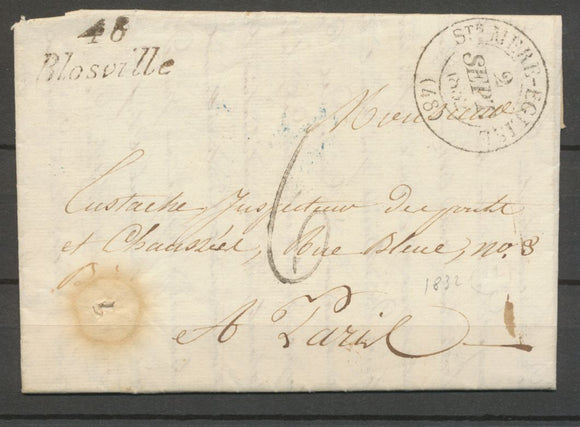 46
Blosville
STE MERE-EGLISE
2
SEPT
1832
(48)
Monsieur
6
Eustache, Inspecteur des ponts
et Chaussées, Rue Bleue, no. 8
A Paris
1832